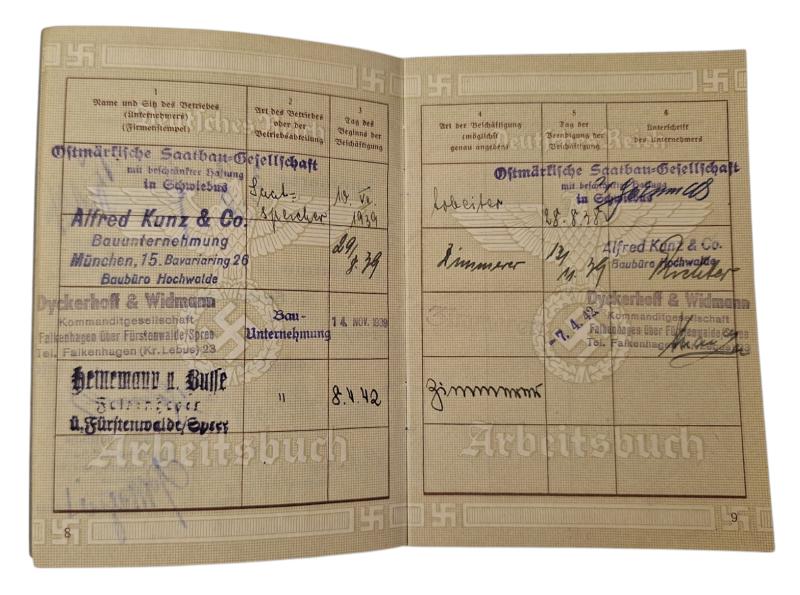 1
Name und Sitz des Betriebes
(Unternehmers)
(Firmenstempel)
2
Art des Betriebes
oder der
Betriebsabteilung
3
Tag des
Beginns der
Beschäftigung
Ostmärkische Saatbau-Gesellschaft
mit beschränkter Haftung
in Schwiebus
Saat-
speicher
1939
Alfred Kunz & Co.
Bauunternehmung
München, 15. Bavariaring 26
Baubüro Hochwalde
29/
8.39
Dyckerhoff & Widmann
Kommanditgesellschaft
Falkenhagen über Fürstenwalde/Spree
Tel. Falkenhagen (Kr. Lebus) 23
Bau-
Unternehmung
14. NOV. 1939
Heinemann u. Busse
Falkenhagen
ü. Fürstenwalde/Spree
"
8.4.42
Arbeitsbuch
8
4
Art der Beschäftigung
(möglichst
genau angeben)
5
Tag der
Beendigung der
Beschäftigung
6
Unterschrift
des Unternehmers
Deutsches Reich
Arbeiter
28.8.39
Ostmärkische Saatbau-Gesellschaft
mit beschränkter Haftung
in Schwiebus
Zimmerer
11.39
Alfred Kunz & Co.
Baubüro Hochwalde
Richter
-7.4.42
Dyckerhoff & Widmann
Kommanditgesellschaft
Falkenhagen über Fürstenwalde/Spree
Tel. Falkenhagen (Kr. Lebus) 23
Arbeitsbuch
9